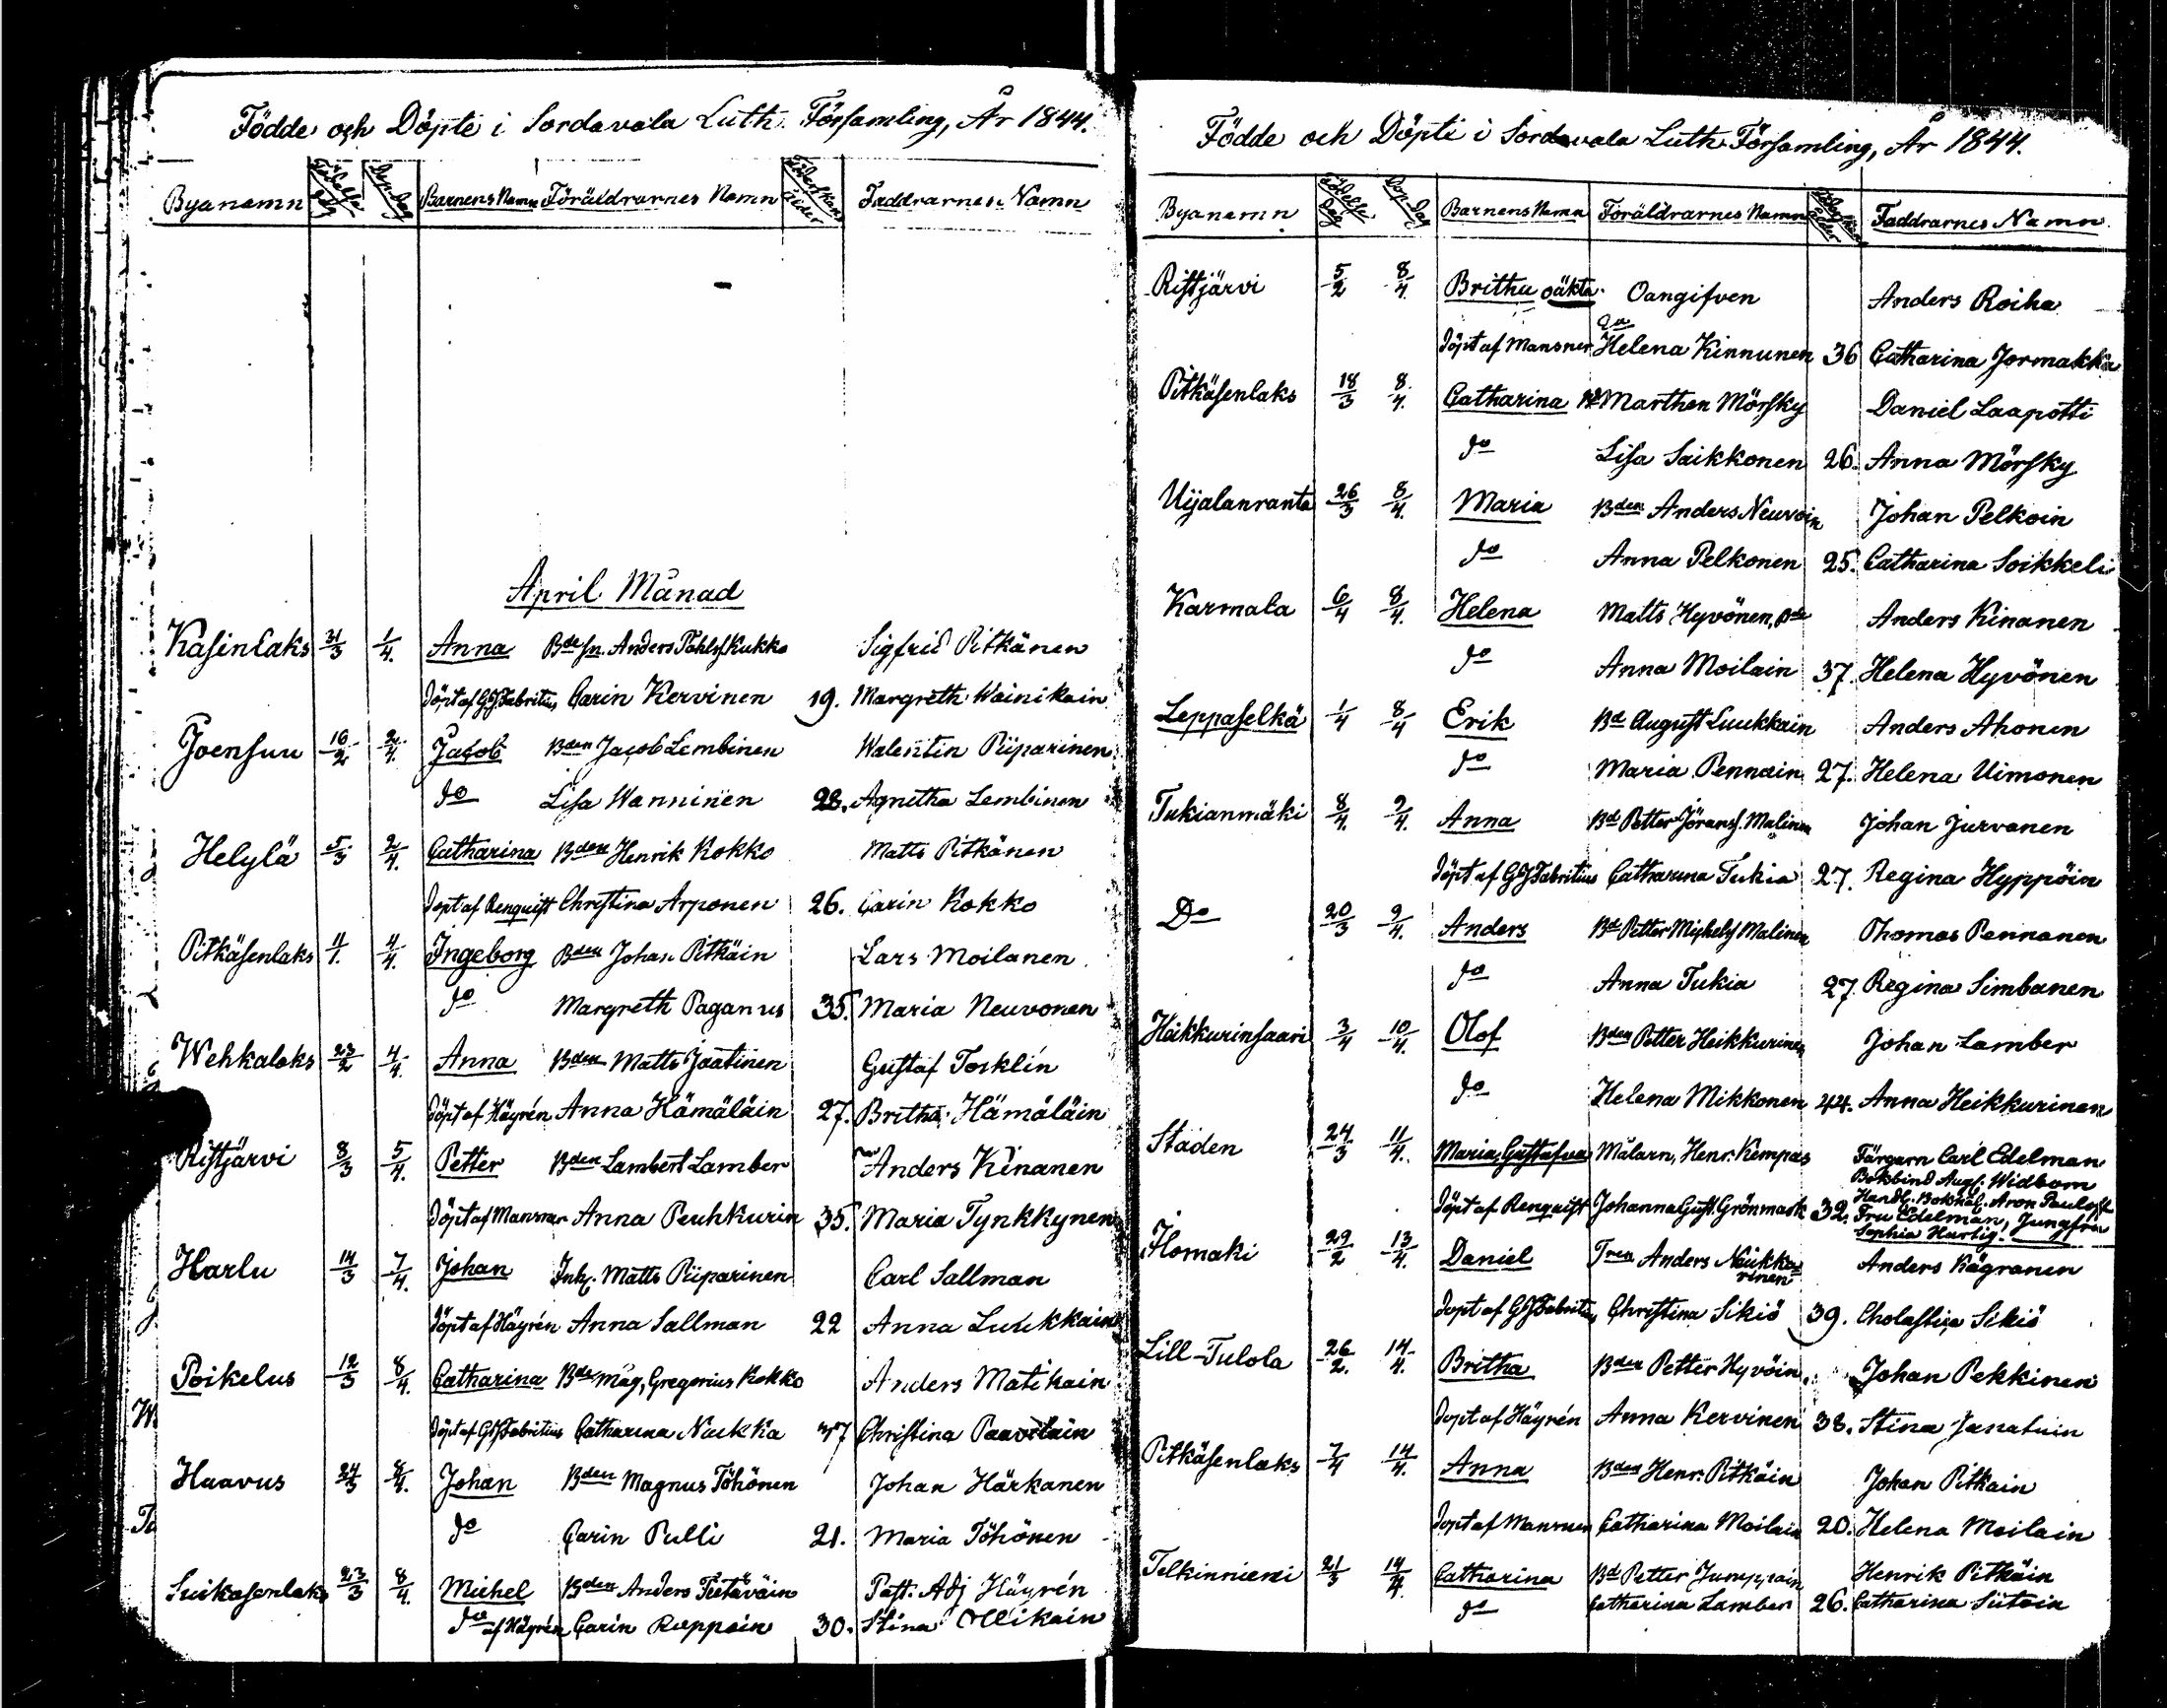 Födde och Döpte i Sordavala Luth. Församling, År 1844.
Byanamn Födelse Dag Dop Dag Barnens Namn Föräldrarnes Namn ålder Faddrarnes Namn
April Månad
Kasinlaks 31/3 1/4. Anna Bdesn. Anders Påhls. Kukko Sigfrid Pitkänen
Döpt af GJFabritius Carin Kervinen 19. Margreth Wainikain
Joensuu 16/2 2/4. Jacob Bden Jacob Lembinen Walentin Piiparinen
do Lisa Wanninen 28. Agnetha Lembinen
Helylä 5/3 2/4. Catharina Bden Henrik Kokko Matts Pitkänen
Döpt af Renquist Christina Arponen 26. Carin Kokko
Pitkäsenlaks 11/1. 4/4. Ingeborg Bden Johan Pitkäin Lars Moilanen
do Margreth Paganus 35. Maria Neuvonen
Wehkalaks 23/2 4/4. Anna Bden Matts Jaatinen Gustaf Torklin
Döpt af Häyrén Anna Hämäläin 27. Britha Hämäläin
Ristjärvi 8/3 5/4. Petter Bden Lambert Lamber Anders Kinanen
Döpt af Mansner Anna Peuhkurin 35. Maria Tynkkynen
Harlu 14/3 7/4. Johan Inh. Matts Piiparinen Carl Sallman
Döpt af Häyrén Anna Sallman 22 Anna Luukkain
Poikelus 12/3 8/4. Catharina Bdemåg, Gregorius Kokko Anders Matikain
Döpt af GJFabritius Catharina Nuikka 37 Christina Paavilain
Haavus 24/3 8/4. Johan Bden Magnus Töhönen Johan Härkanen
do Carin Pulli 21. Maria Töhönen
Suikasenlaks 23/3 8/4. Michel Bden Anders Tietäväin Past. Adj Häyrén
do af Häyrén Carin Ruppoin 30. Stina Ollikain
Födde och Döpti i Sordavala Luth. Församling, År 1844.
Byanamn Födelse Dag Dop Dag Barnens Namn Föräldrarnes Namn ålder Faddrarnes Namn
Ristjärvi 5/2 8/4. Britha oäkta. Oangifven Anders Roiha
Döpt af Mansner Helena Kinnunen 36 Catharina Jormakka
Pitkäsenlaks 18/3 8/4. Catharina Marthen Mörsky Daniel Laapotti
do Lisa Saikkonen 26. Anna Mörsky
Uijalanranta 26/3 8/4. Maria Bden Anders Neuvoin Johan Pelkoin
do Anna Pelkonen 25. Catharina Soikkeli
Karmala 6/4 8/4. Helena Matts Hyvönen, Bde Anders Kinanen
do Anna Moilain 37. Helena Hyvönen
Leppaselkä 1/4 8/4 Erik Bd August Luukkain Anders Ahonen
do Maria Pennain 27. Helena Uimonen
Tukianmäki 8/4. 9/4. Anna Bd Petter Jörans. Malinen Johan Jurvanen
Döpt af GJFabritius Catharina Tukia 27. Regina Hyppöin
Do 20/3 9/4. Anders Bd Petter Michels Malinen Thomas Pennanen
do Anna Tukia 27. Regina Simbanen
Heikkurinsaari 3/4 10/4. Olof Bden Petter Heikkurinen Johan Lamber
do Helena Mikkonen 44. Anna Heikkurinen
Staden 24/3 11/4. Maria, Gustafva Målarn, Henr. Kempas Färgarn Carl Edelman
Bokbind Aug. Widbom
Döpt af Renquist Johanna Gust. Grönmark 32. Handl. Bokhål. Aron Pauloff
Fru Edelman, Jungfru
Sophia Hartig.
Ilomaki 29/2 13/4. Daniel Tren Anders Neukkarinen Anders Kägranen
Döpt af GJFabritius Christina Sikiö 39. Cholastica Sikiö
Lill-Tulola 26/2. 14/4. Britha Bden Petter Hyvöin Johan Pekkinen
Döpt af Häyrén Anna Kervinen 38. Stina Janatuin
Pitkäsenlaks 7/4 14/4. Anna Bden Henr. Pitkäin Johan Pitkain
Döpt af Mansner Catharina Moilain 20. Helena Moilain
Telkinniemi 21/3 14/4. Catharina Bd Petter Jumppain Henrik Pitkäin
do Catharina Lamber 26. Catharina Siitoin